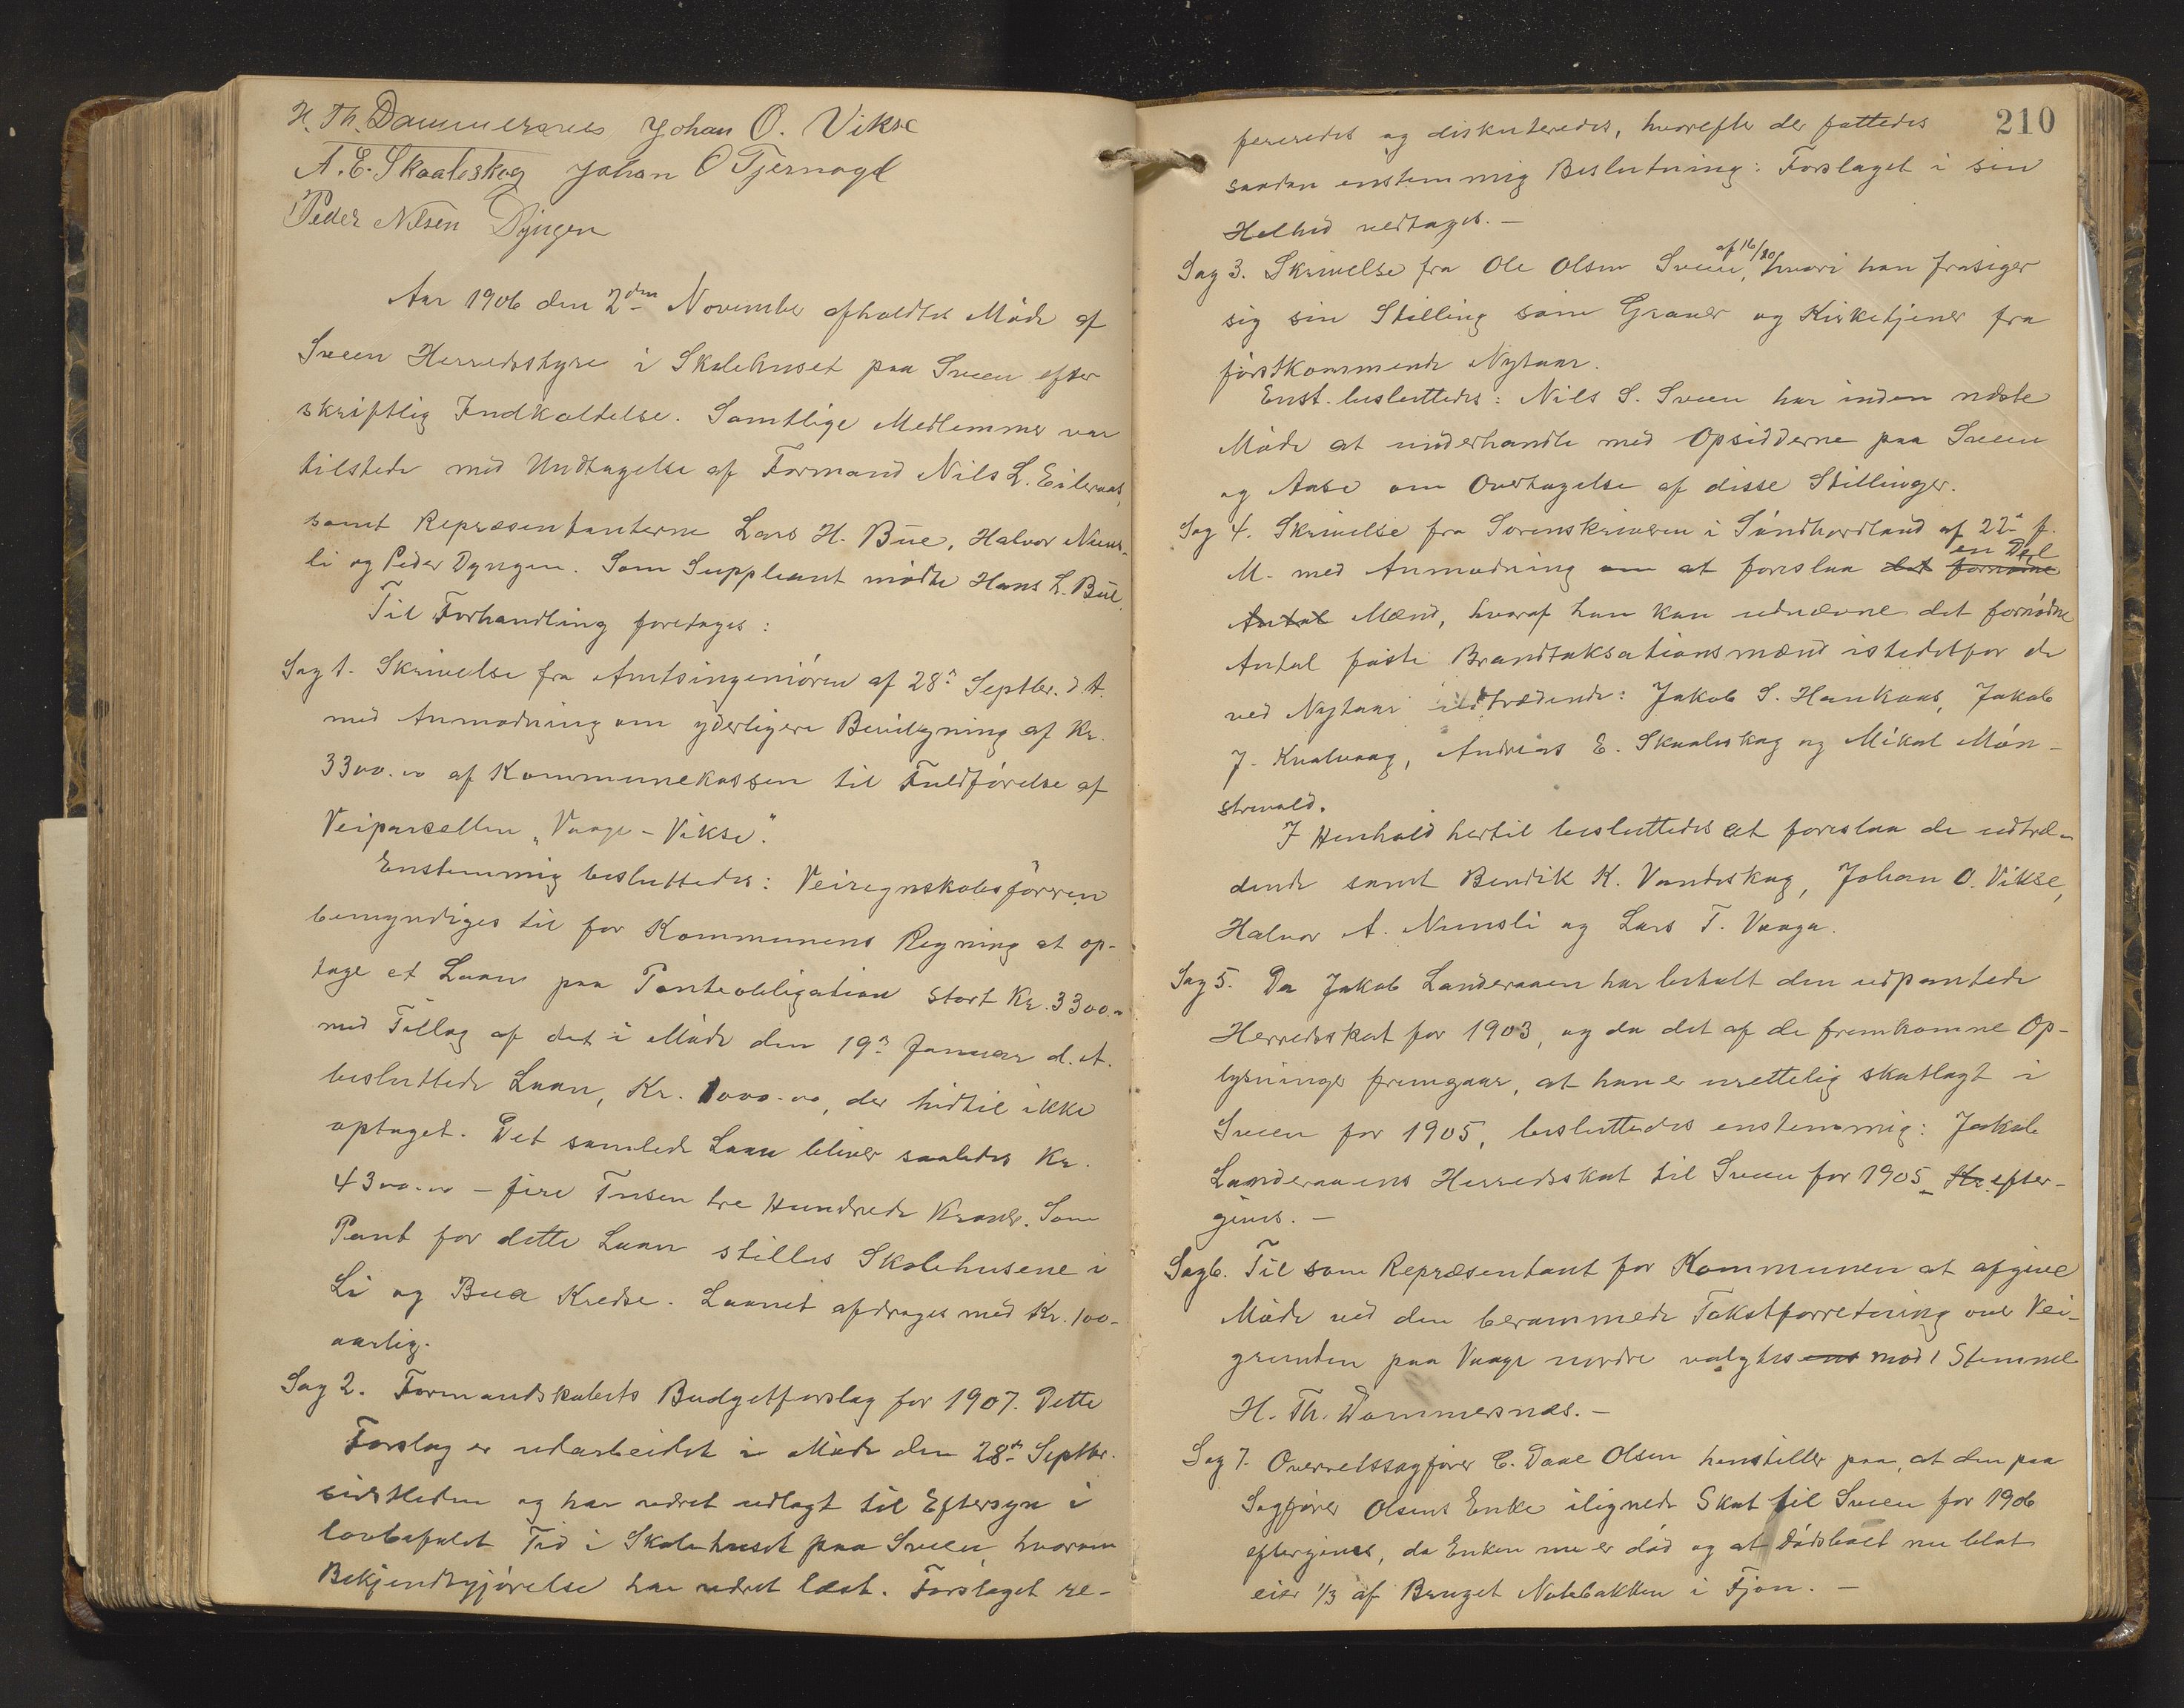 H. Th. Dammersnes Johan O. Vikse
A. E. Skaaleskog Johan O Tjernagel
Peder Nilsen Dyngen
Aar 1906 den 2den November afholdtes Møde af
Sveen Herredsstyre i Skolehuset paa Sveen efter
skriftlig Indkaldelse. Samtlige Medlemmer var
tilstede med Undtagelse af Formand Nils L. Eileraas,
samt Repræsentanterne Lars H. Bue, Halvor Nims-
li og Peder Dyngen. Som Suppleant mødte Hans L. Bue.
Til Forhandling foretoges:
Sag 1. Skrivelse fra Amtsingeniøren af 28de Septbr. d. A.
med Anmodning om yderligere Bevilgning af Kr.
3300.00 af Kommunekassen til Fuldførelse af
Veiparcellen „Vaage - Vikse".
Enstemmig besluttedes: Veiregnskabsføreren
bemyndiges til for Kommunens Regning at op-
tage et Laan paa Panteobligation stort Kr. 3300.00
med Tillæg af det i Møde den 19de Januar d. A.
besluttede Laan, Kr. 1000.00, der hidtil ikke
optaget. Det samlede Laan bliver saaledes Kr.
4300.00 - fire Tusen tre Hundrede Kroner. Som
Pant for dette Laan stilles Skolehusene i
Li og Bua Kredse. Laanet afdrages med Kr. 100-
aarlig.
Sag 2. Formandskabets Budgetforslag for 1907. Dette
Forslag er udarbeidet i Møde den 28de Septbr.
sidstleden og har været udlagt til Eftersyn i
lovbefalet Tid i Skolehuset paa Sveen, hvorom
Bekjendtgjørelse har været læst. Forslaget re-
210
fereredes og diskuteredes, hvorefter der fattedes
saadan enstemmig Beslutning: Forslaget i sin
Helhed vedtaget. -
Sag 3. Skrivelse fra Ole Olsen Sveen, af 16/10, hvori han frasiger
sig sin Stilling som Graver og Kirketjener fra
førstkommende Nytaar.
Enst. besluttedes: Nils S. Sveen har inden næste
Møde at underhandle med Opsidderne paa Sveen
og Aase om Overtagelse af disse Stillinger.
Sag 4. Skrivelse fra Sorenskriveren i Søndhordland af 22de f.
M. med Anmodning om at foreslaa det fornødne en Del
Antal Mænd, hvoraf han kan udnævne det fornødne
Antal faste Brandtaksationsmænd istedetfor de
ved Nytaar udtrædende: Jakob S. Haukaas, Jakob
J. Kvalvaag, Andreas E. Skaaleskog og Mikal Møn-
strevold.
I Henhold hertil besluttedes at foreslaa de udtræ-
dende samt Bendik K. Vandskog, Johan O. Vikse,
Halvor A. Nimsli og Lars T. Vaage.
Sag 5. Da Jakob Landeraaen har betalt den udpantede
Herredsskat for 1903, og da det af de fremkomne Op-
lysninger fremgaar, at han er urettelig skatlagt i
Sveen for 1905, besluttedes enstemmig: Jakob
Landeraaens Herredsskat til Sveen for 1905 Kr. efter-
gives. -
Sag 6. Til som Repræsentant for Kommunen at afgive
Møde ved den berammede Takstforretning over Vei-
grunden paa Vaage nordre valgtes ens mod 1 Stemme
H. Th. Dommersnæs. -
Sag 7. Overretssagfører C. Daae Olsen henstiller paa, at den paa
Sagfører Olsens Enke ilignede Skat til Sveen for 1906
eftergives, da Enken nu er død og at Dødsboet nu blot
eier 1/3 af Bruget Notebakken i Fjon. -